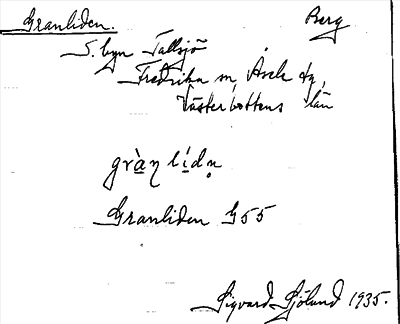 Granliden. Berg
S. byn Tallsjö
Fredrika sn, Åsele tg,
Västerbottens län
gràn lídṇ
Granliden G55
Sigvard Sjölund 1935.